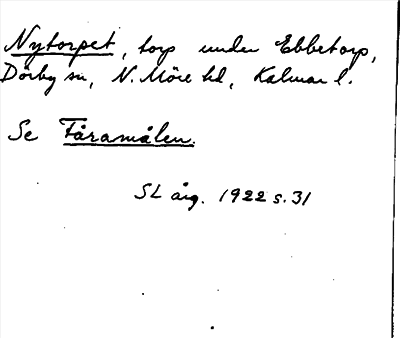 Nytorpet, torp under Ebbetorp,
Dörby sn, N. Möre hd, Kalmar l.
Se Fåramålen.
SL årg. 1922 s. 31